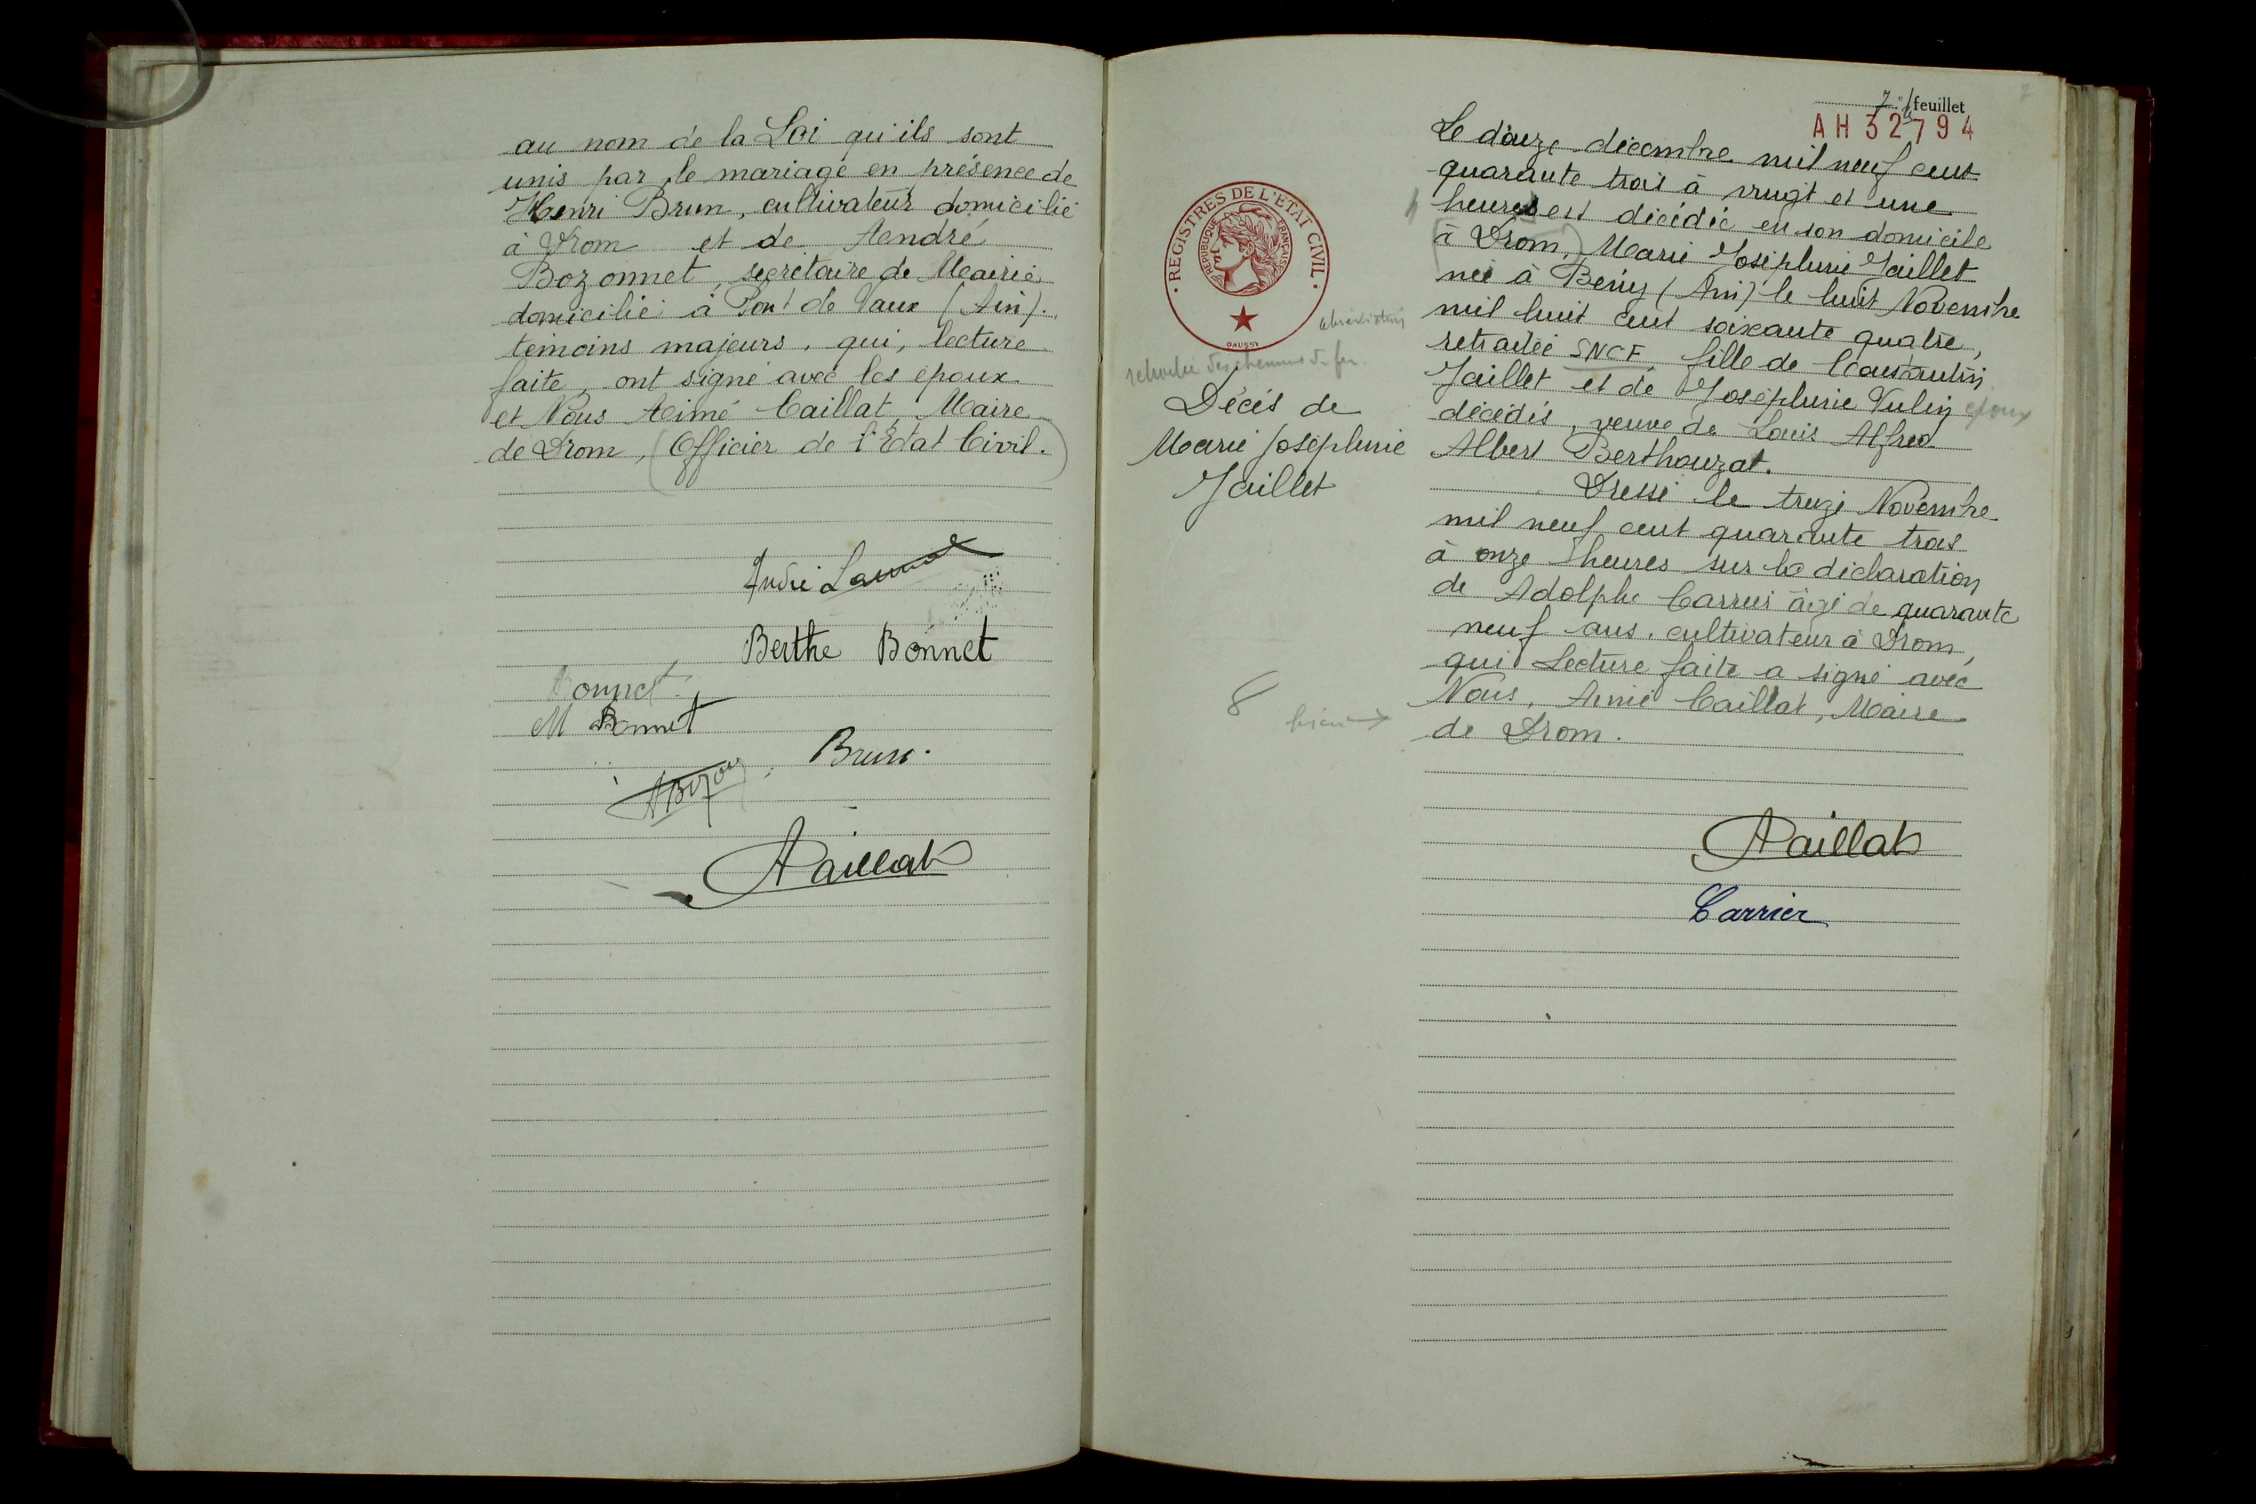 au nom de la Loi qu'ils sont
unis par le mariage en présence de
Henri Brun, cultivateur domicilié
à Drom et de André
Bozonnet, secrétaire de Mairie
domicilié à Pont de Vaux (Ain).
témoins majeurs, qui, lecture
faite, ont signé avec les époux
et Nous Aimé Caillat, Maire
de Drom, (Officier de l'Etat Civil.)
André
Berthe Bonnet
Bonnet
M Bonnet
Brun.
ABozon
ACaillat
7e feuillet
AH 32794
7
REGISTRES DE L'ETAT CIVIL
REPUBLIQUE FRANÇAISE
DAUSSY
abréviation
retraitée des chemins de fer
Décès de
Marie Joséphine
Jaillet
8
Le douze décembre mil neuf cent
quarante trois à vingt et une
heures est décédée en son domicile
à Drom, Marie Joséphine Jaillet
née à Bény (Ain) le huit Novembre
mil huit cent soixante quatre,
retraitée SNCF fille de Constantin
Jaillet et de Joséphine Vulin époux
décédés, veuve de Louis Alfred
Albert Berthouzat.
Dressé le treize Novembre
mil neuf cent quarante trois
à onze heures sur la déclaration
de Adolphe Carrier âgé de quarante
neuf ans, cultivateur à Drom,
qui lecture faite a signé avec
Nous, Aimé Caillat, Maire
de Drom.
ACaillat
Carrier